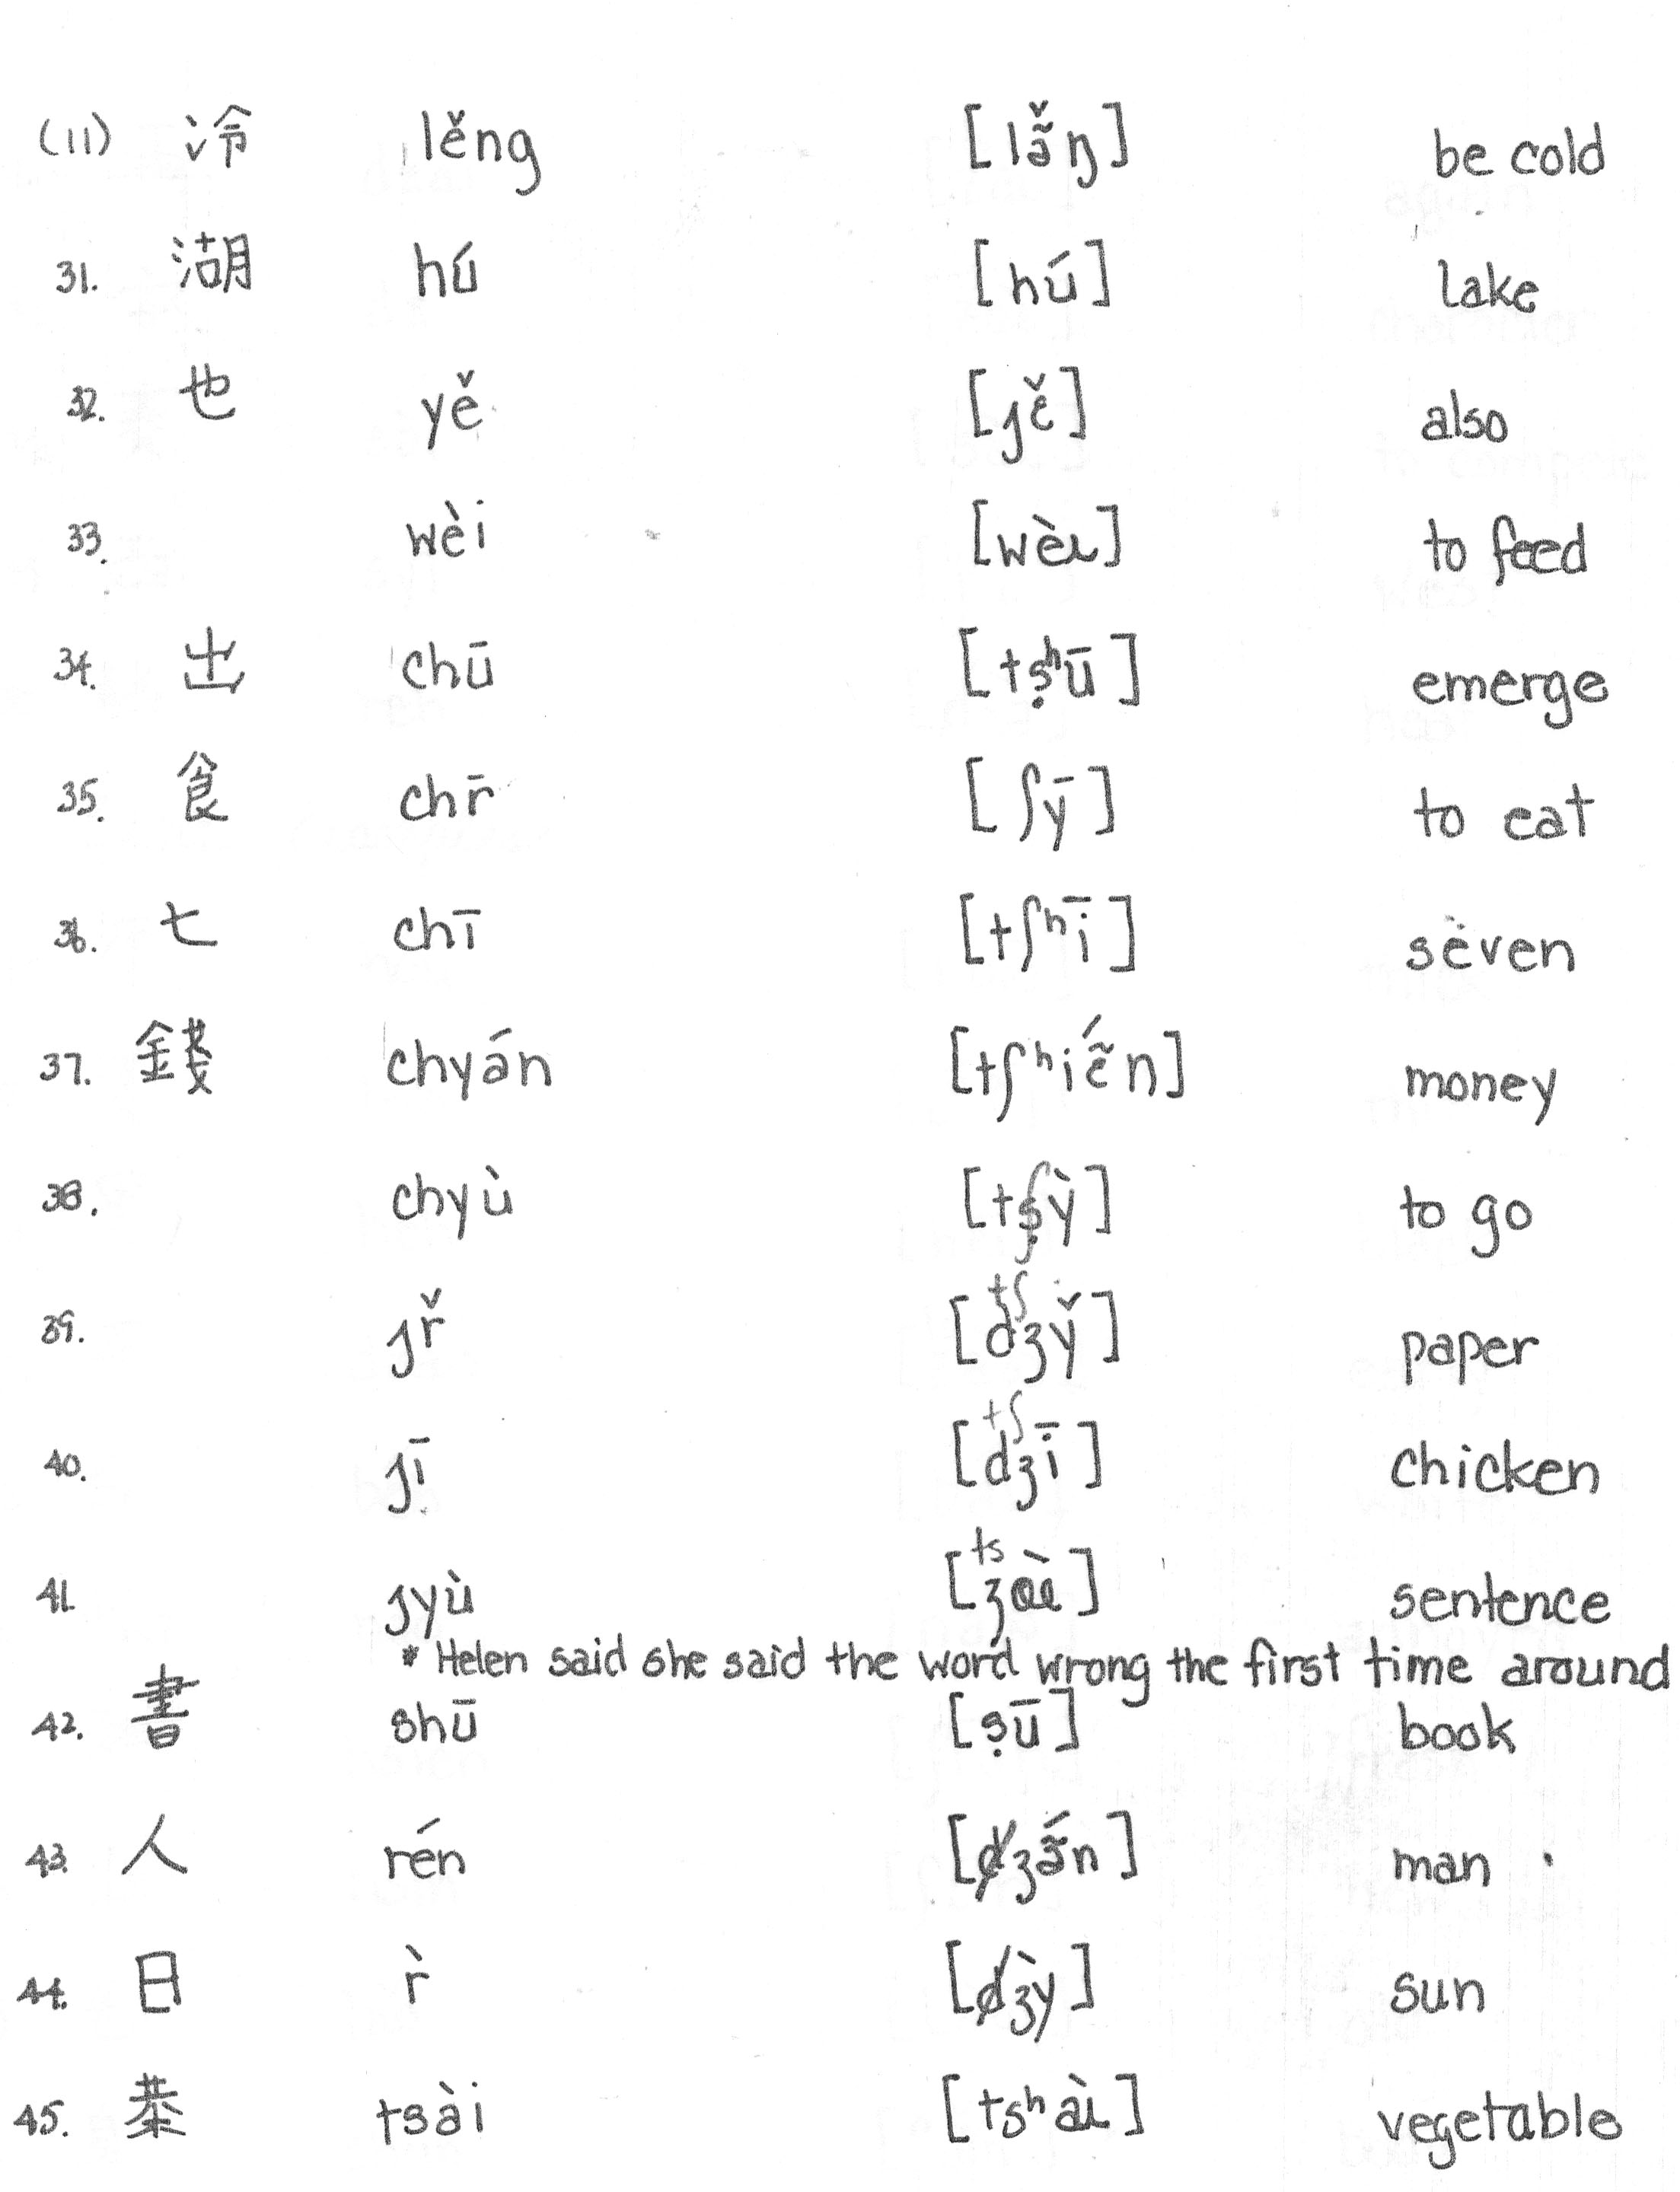 (11) 冷 lěng [lə̃̌ŋ] be cold
31. 湖 hú [hú] lake
32. 也 yě [jɛ̌] also
33. wèi [wèɩ] to feed
34. 出 chū [tṣʰū] emerge
35. 食 chr̄ [ʃȳ] to eat
36. 七 chī [tʃʰī] seven
37. 錢 chyán [tʃʰiɛ̃́n] money
38. chyù [tʃỳ] to go
tʃ
39. ɟř [dʒy̌] paper
tʃ
40. ɟī [dʒī] chicken
ts
41. ɟyù sentence
* Helen said she said the word wrong the first time around
42. 書 shū [ṣū] book
43. 人 rén [ʒə̃́n] man
44. 日 r̀ [ʒỳ] sun
45. 菜 tsài [tsʰàɩ] vegetable